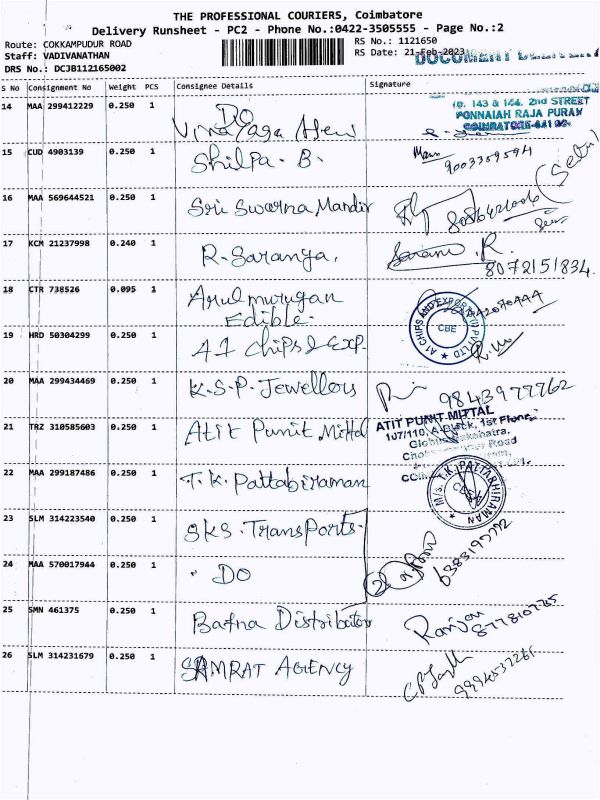 THE PROFESSIONAL COURIERS, Coimbatore
Delivery Runsheet - PC2 - Phone No.:0422-3505555 - Page No.:2
Route: COKKAMPUDUR ROAD
RS No.: 1121650
Staff: VADIVANATHAN
RS Date: 21-Feb-2023
DRS No.: DCJB112165002
S No Consignment No Weight PCS Consignee Details Signature
14 MAA 299412229 0.250 1 DO
Vinayaga
10. 143 & 144, 2nd STREET
PONNAIAH RAJA PURAM
15 CUD 4903139 0.250 1 Shilpa. B. 9003359594
16 MAA 569644521 0.250 1 Sri Swarna Mandir
17 KCM 21237998 0.240 1 R. Saranya. R.
8072151834.
18 CTR 738526 0.095 1 Arulmurugan
Edible.
A1 CHIPS AND EXPORTS (I) PVT LTD
CBE
19 HRD 50304299 0.250 1 A1 chips & Exp.
20 MAA 299434469 0.250 1 K.S.P. Jewellers 9843977762
21 TRZ 310585603 0.250 1 Atit Punit Mittal
ATIT PUNIT MITTAL
107/110, A-Block, 1st Floor,
22 MAA 299187486 0.250 1 T.K. Pattabiraman
M/s. T.K. PATTABHIRAMAN
23 SLM 314223540 0.250 1 SKS. Transports.
24 MAA 570017944 0.250 1 " DO
25 SMN 461375 0.250 1 Bafna Distributor Ranjan
26 SLM 314231679 0.250 1 SAMRAT AGENCY